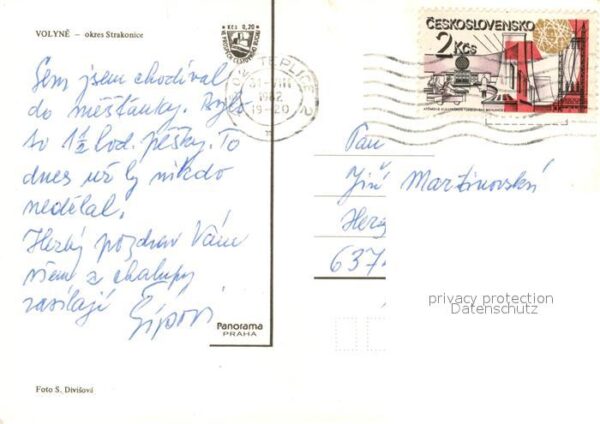 VOLYNĚ – okres Strakonice
Kčs 0,20
Sem jsem chodíval
do měšťanky. Bylo
to 1 1/2 hod. pěšky. To
dnes už by nikdo
nedělal.
Hezký pozdrav Vám
všem z chalupy
zasílají Šípovi
Panorama
PRAHA
Foto S. Divišová
TEPLICE
1982
19-20
ČESKOSLOVENSKO
2 Kčs
Pan
Jiří Martinovský
637
privacy protection
Datenschutz